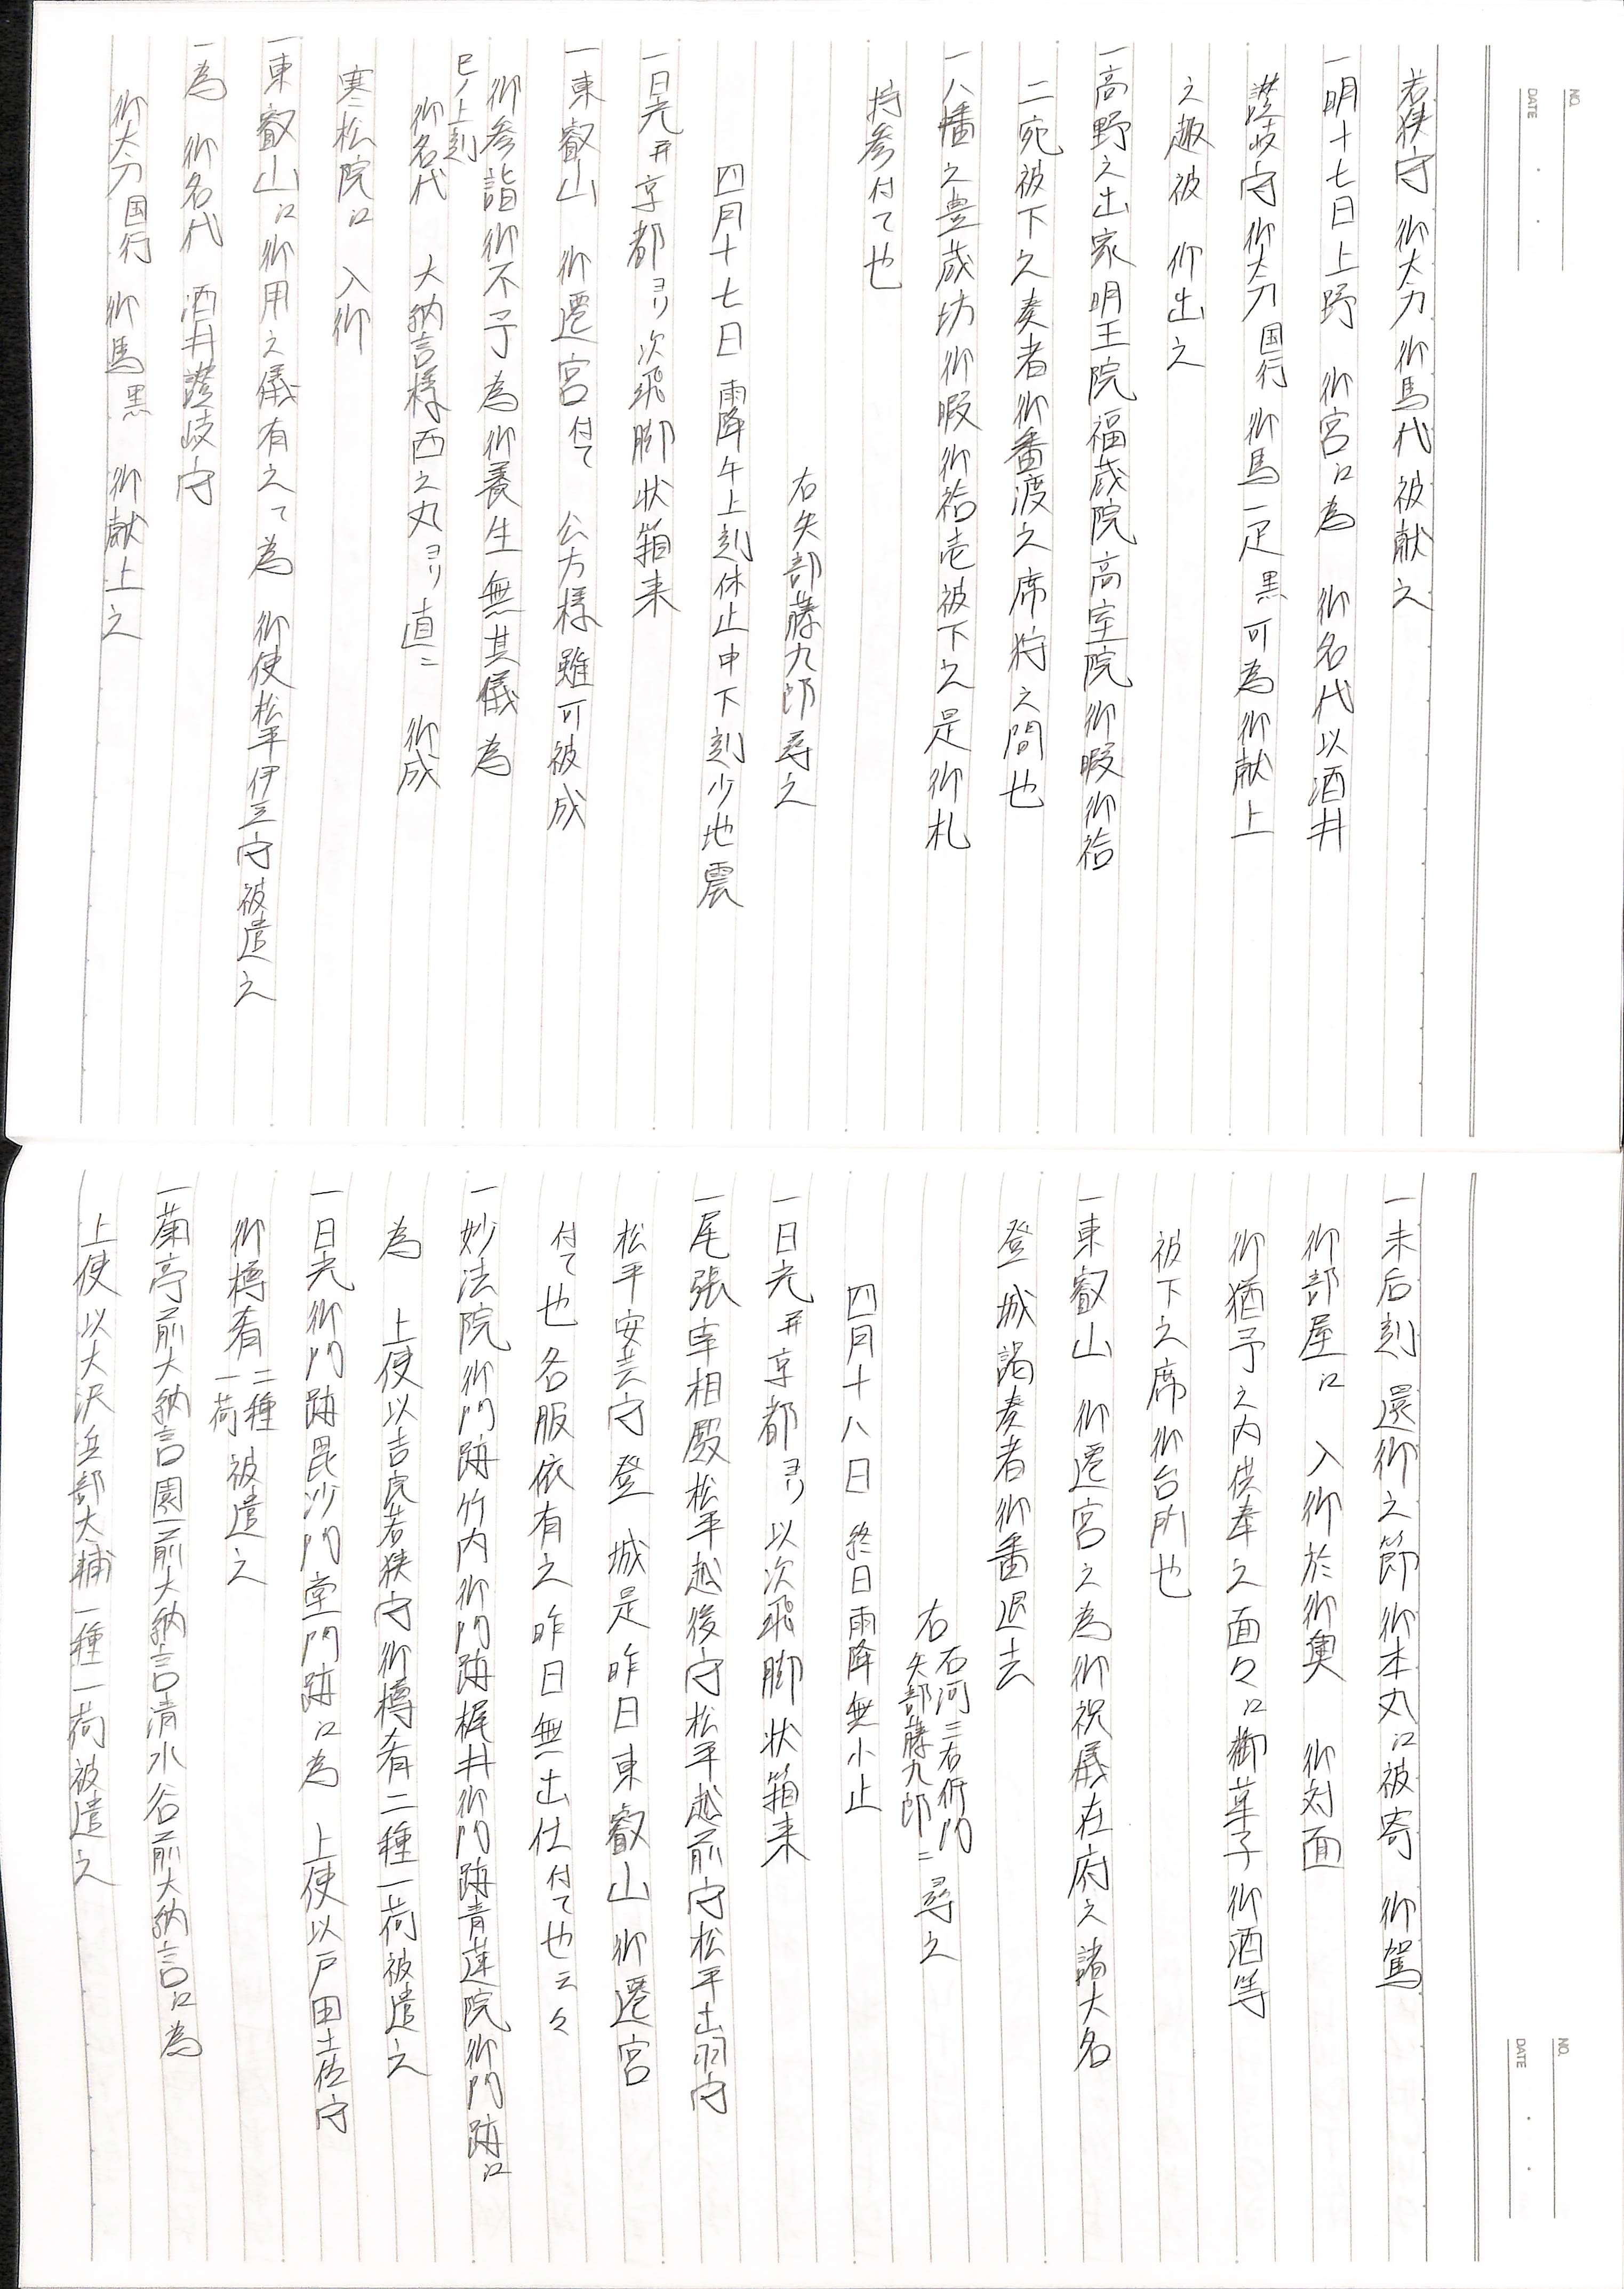 若狭守 御太刀 御馬代 被献之
一明十七日上野 御宮江為 御名代以酒井
讃岐守 御太刀国行 御馬一疋黒 可為御献上
之趣被 仰出之
一高野之出家明王院福蔵院高室院御暇御袷
二宛被下之奏者御番渡之席狩之間也
一八幡之豊蔵坊御暇御袷壱被下之是御札
持参付て也
右矢部藤九郎尋之
四月十七日 雨降午上刻休止申下刻少地震
一日光并京都ヨリ次飛脚状箱来
一東叡山 御遷宮付て 公方様雖可被成
御参詣御不予為御養生無其儀為
巳ノ上刻
御名代 大納言様西之丸ヨリ直ニ 御成
寒ニ松院江 入御
一東叡山江御用之儀有之て為 御使松平伊豆守被遣之
一為 御名代 酒井讃岐守
御太刀国行 御馬黒 御献上之
一未后刻 還御之節御本丸江被寄 御駕
御部屋江 入御於御奥 御対面
御猶予之内供奉之面々江御菓子御酒等
被下之席御台所也
一東叡山 御遷宮之為御祝儀在府之諸大名
登城謁奏者御番退去
右 石河三右衛門 矢部藤九郎 ニ尋之
四月十八日 終日雨降無小止
一日光并京都ヨリ以次飛脚状箱来
一尾張宰相殿松平越後守松平越前守松平出羽守
松平安芸守登 城是昨日東叡山御遷宮
付て也各服依有之昨日無出仕付て也云々
一妙法院御門跡竹内御門跡梶井御門跡青蓮院御門跡江
為 上使以吉良若狭守御樽肴二種一荷被遣之
一日光御門跡毘沙門堂門跡江為 上使以戸田土佐守
御樽肴二種一荷被遣之
一菊亭前大納言園前大納言清水谷前大納言江為
上使以大沢兵部大輔一種一荷被遣之
NO.
DATE
NO.
DATE